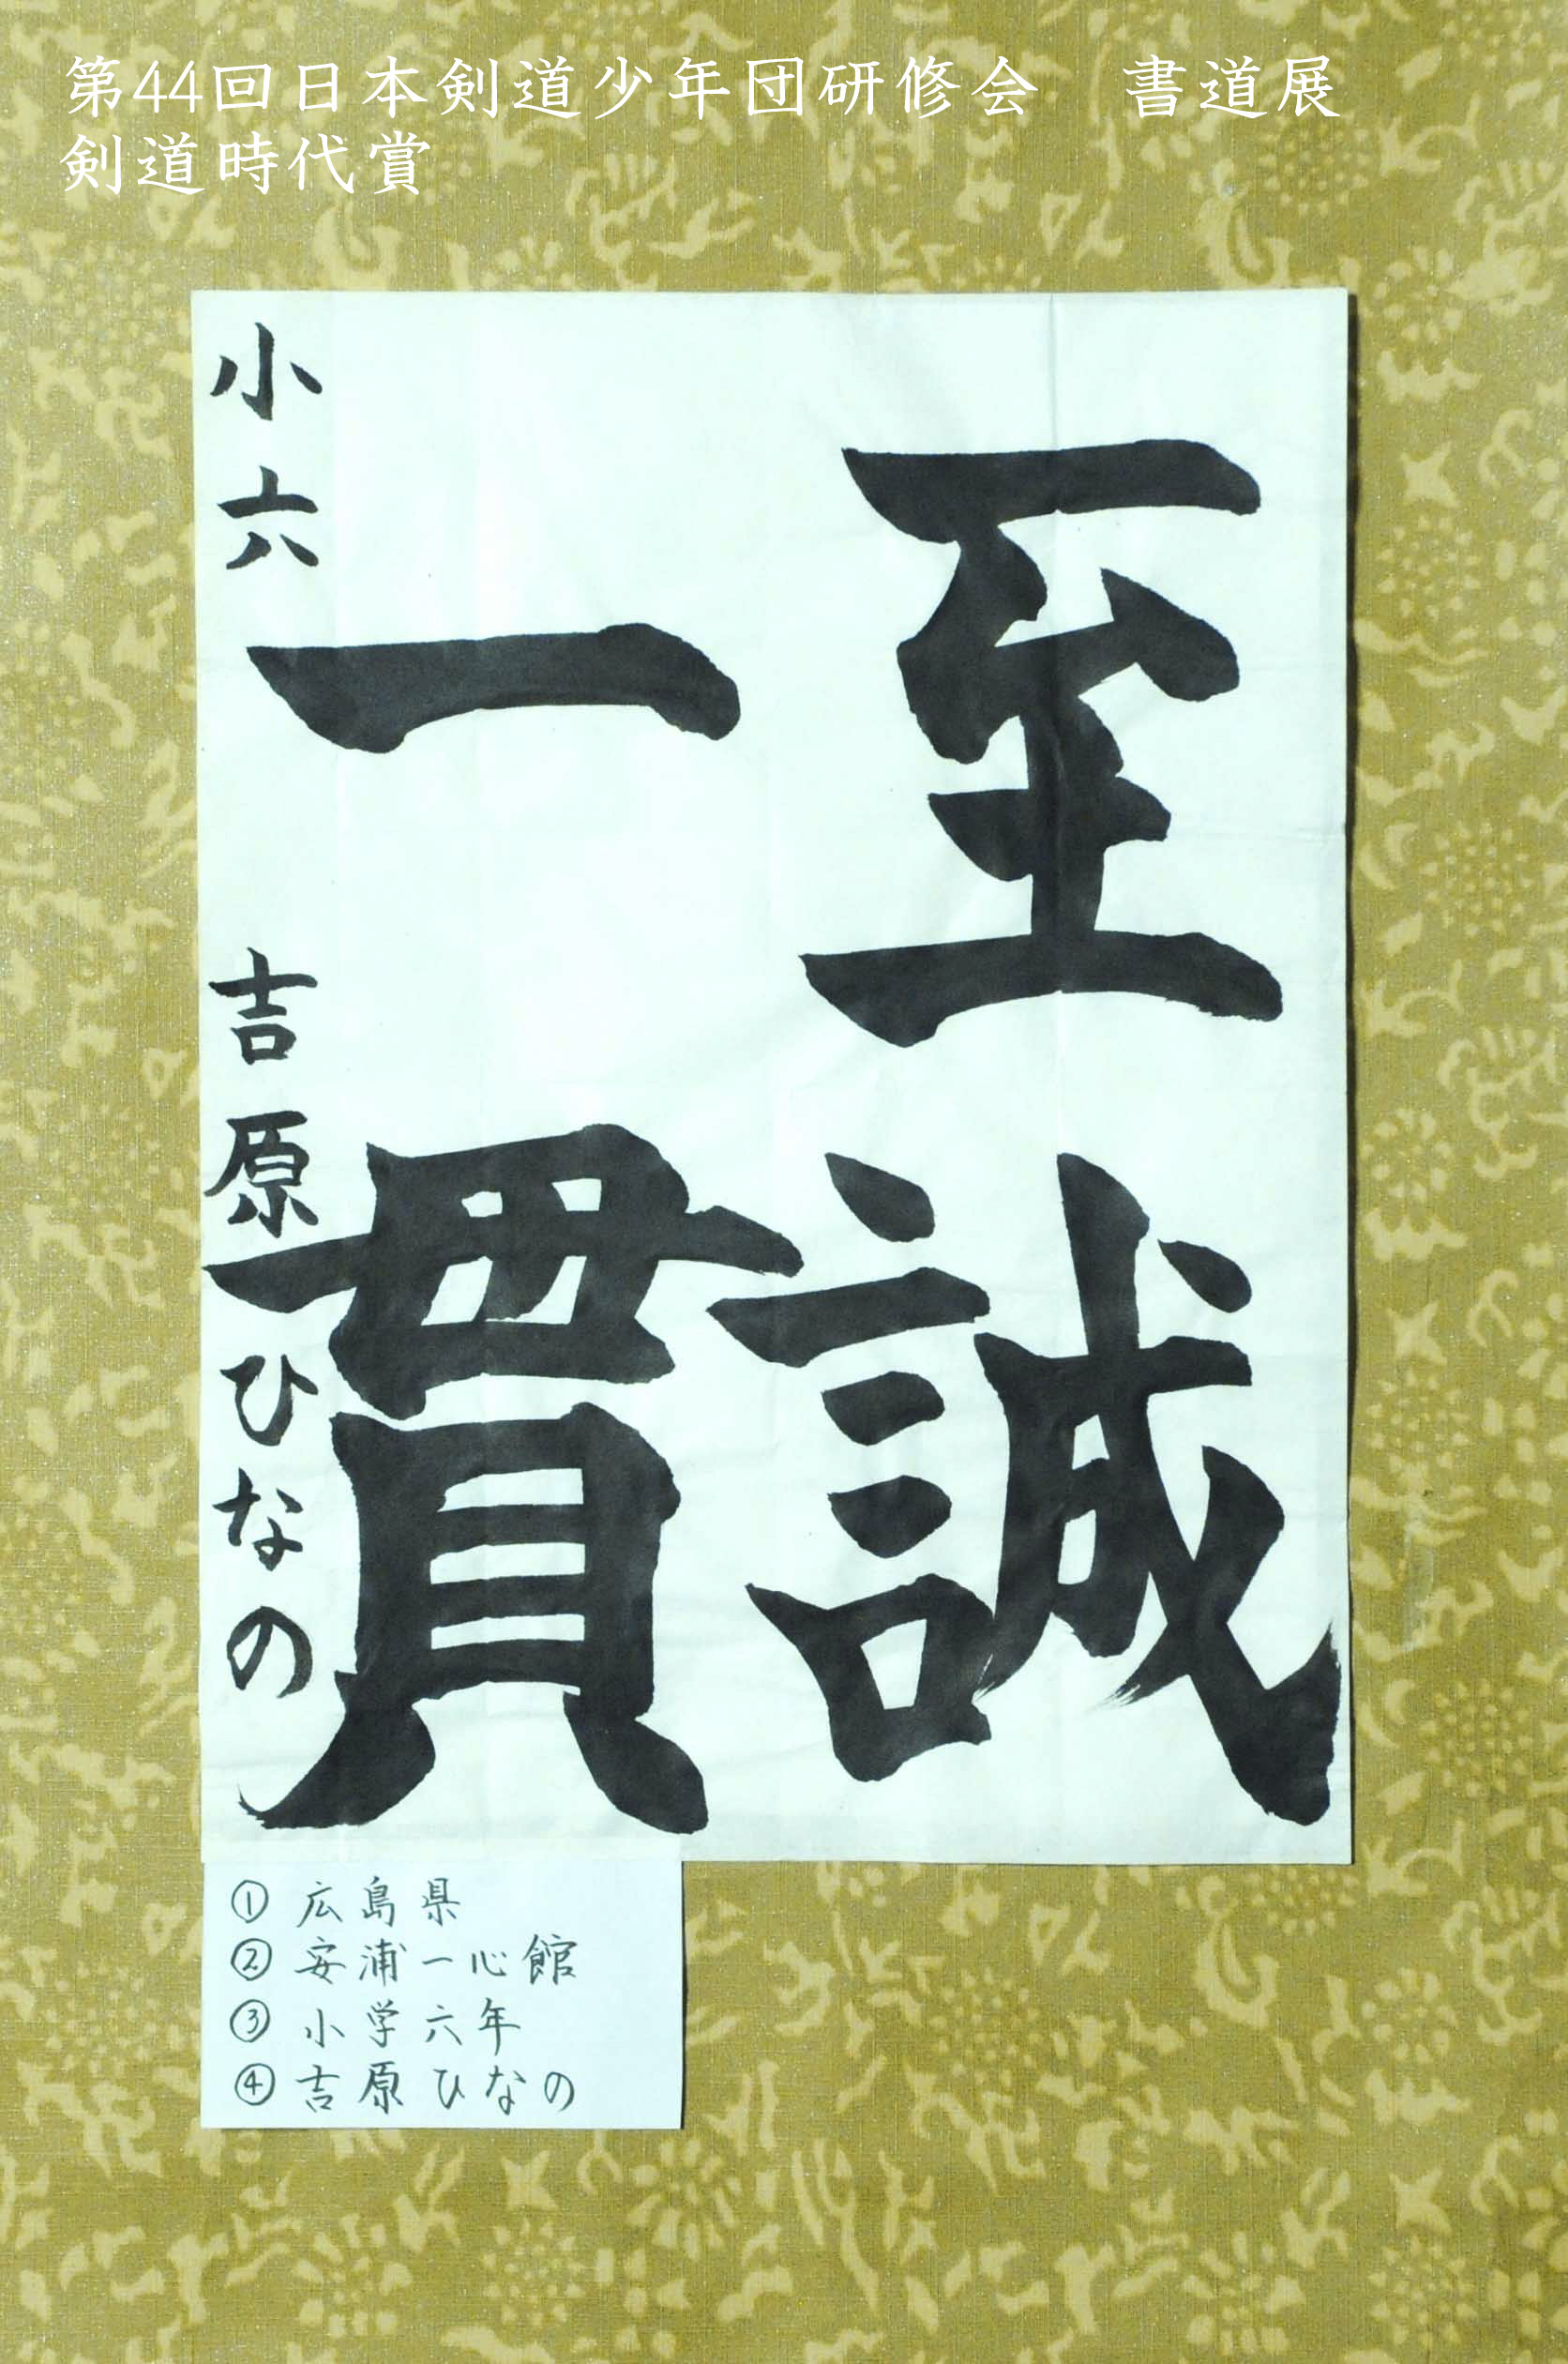 第44回日本剣道少年団研修会　書道展
剣道時代賞
至誠
一貫
小六　吉原ひなの
① 広島県
② 安浦一心館
③ 小学六年
④ 吉原ひなの